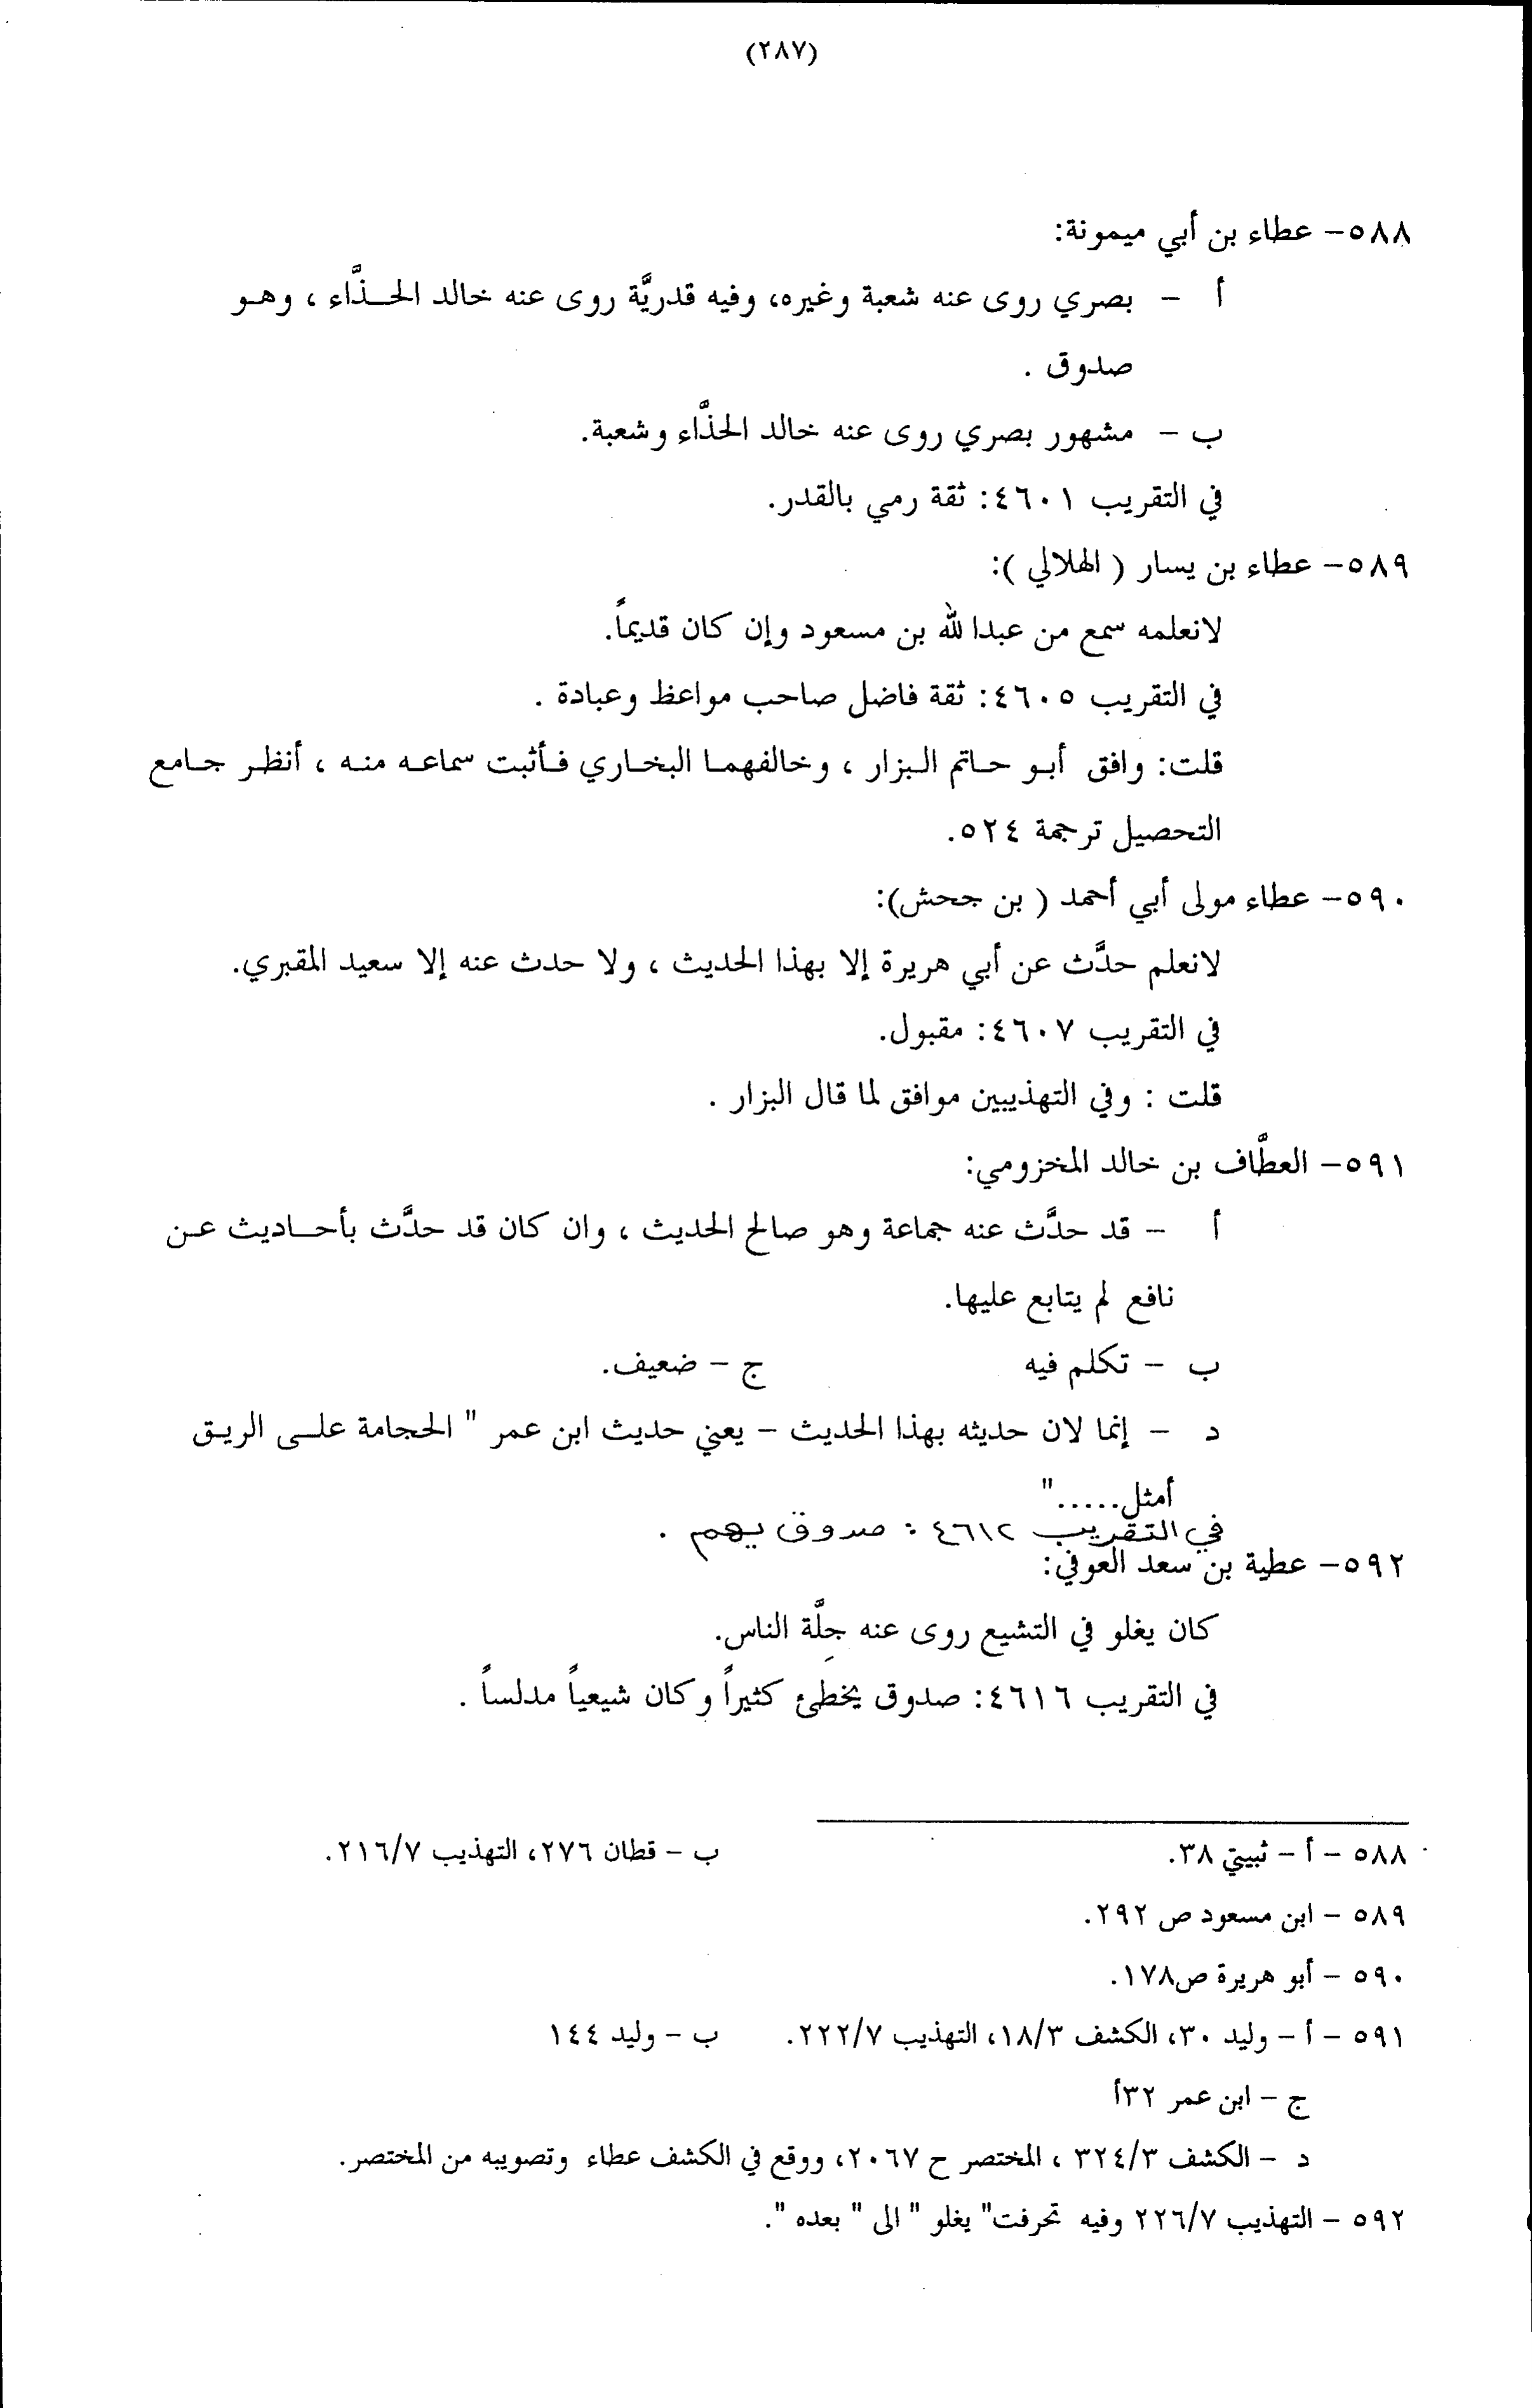 (٢٨٧)
٥٨٨– عطاء بن أبي ميمونة:
أ – بصري روى عنه شعبة وغيره، وفيه قدريَّة روى عنه خالد الحذَّاء ، وهو
صدوق .
ب – مشهور بصري روى عنه خالد الحذَّاء وشعبة.
في التقريب ٤٦٠١: ثقة رمي بالقدر.
٥٨٩– عطاء بن يسار ( الهلالي ):
لانعلمه سمع من عبدالله بن مسعود وإن كان قديماً.
في التقريب ٤٦٠٥: ثقة فاضل صاحب مواعظ وعبادة .
قلت: وافق أبو حاتم البزار ، وخالفهما البخاري فأثبت سماعه منه ، أنظر جامع
التحصيل ترجمة ٥٢٤.
٥٩٠– عطاء مولى أبي أحمد ( بن جحش):
لانعلم حدَّث عن أبي هريرة إلا بهذا الحديث ، ولا حدث عنه إلا سعيد المقبري.
في التقريب ٤٦٠٧: مقبول.
قلت : وفي التهذيبين موافق لما قال البزار .
٥٩١– العطَّاف بن خالد المخزومي:
أ – قد حدَّث عنه جماعة وهو صالح الحديث ، وان كان قد حدَّث بأحاديث عن
نافع لم يتابع عليها.
ب – تكلم فيه ج – ضعيف.
د – إنما لان حديثه بهذا الحديث – يعني حديث ابن عمر " الحجامة على الريق
أمثل....."
في التقريب ٤٦١٢ : صدوق يهم .
٥٩٢– عطية بن سعد العوفي:
كان يغلو في التشيع روى عنه جِلَّة الناس.
في التقريب ٤٦١٦: صدوق يخطئ كثيراً وكان شيعياً مدلساً .
٥٨٨ – أ – ثبيتي ٣٨. ب – قطان ٢٧٦، التهذيب ٢١٦/٧.
٥٨٩ – ابن مسعود ص ٢٩٢.
٥٩٠ – أبو هريرة ص١٧٨.
٥٩١ – أ – وليد ٣٠، الكشف ١٨/٣، التهذيب ٢٢٢/٧. ب – وليد ١٤٤
ج – ابن عمر ٣٢أ
د – الكشف ٣٢٤/٣ ، المختصر ح ٢٠٦٧، ووقع في الكشف عطاء وتصويبه من المختصر.
٥٩٢ – التهذيب ٢٢٦/٧ وفيه تحرفت" يغلو " الى " بعده ".